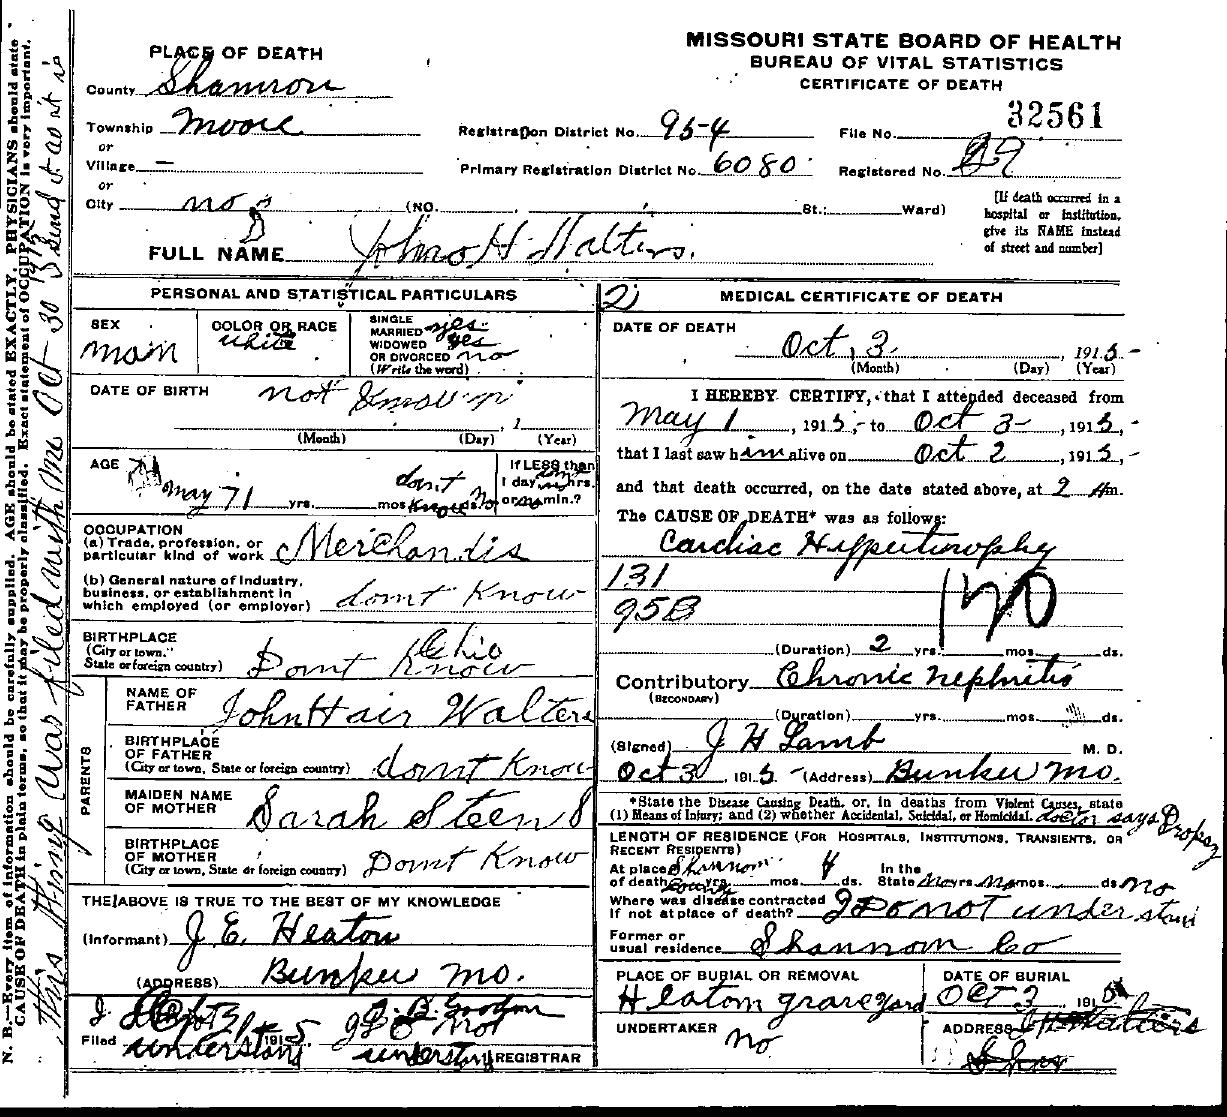 MISSOURI STATE BOARD OF HEALTH
BUREAU OF VITAL STATISTICS
CERTIFICATE OF DEATH
PLACE OF DEATH
County
Township Moore
or
Village —
or
City no
Registration District No. 954
Primary Registration District No. 6080
(NO. St.; Ward)
File No. 32561
Registered No.
[If death occurred in a
hospital or institution,
give its NAME instead
of street and number]
FULL NAME John H Walters.
PERSONAL AND STATISTICAL PARTICULARS
SEX
man
COLOR OR RACE
white
SINGLE
MARRIED yes
WIDOWED yes
OR DIVORCED no
(Write the word)
DATE OF BIRTH not
(Month) (Day) (Year)
AGE
may 71 yrs. dont know mos.
If LESS than
1 day hrs.
or min.?
OCCUPATION
(a) Trade, profession, or
particular kind of work Merchandis
(b) General nature of Industry,
business, or establishment in
which employed (or employer) domt Know
BIRTHPLACE
(City or town,
State or foreign country) Ohio
Domt Know
PARENTS
NAME OF
FATHER John Hair Walters
BIRTHPLACE
OF FATHER
(City or town, State or foreign country) domt Know
MAIDEN NAME
OF MOTHER Sarah Steen
BIRTHPLACE
OF MOTHER
(City or town, State or foreign country) Domt Know
THE ABOVE IS TRUE TO THE BEST OF MY KNOWLEDGE
(Informant) J. E. Heaton
(ADDRESS) Bunker Mo.
Filed 1915
REGISTRAR
2)
MEDICAL CERTIFICATE OF DEATH
DATE OF DEATH
Oct, 3, 1915-
(Month) (Day) (Year)
I HEREBY CERTIFY, that I attended deceased from
May 1, 1915, to Oct 3-, 1915,-
that I last saw him alive on Oct 2, 1915,-
and that death occurred, on the date stated above, at 9 Am.
The CAUSE OF DEATH* was as follows:
Cardiac Hyppertrophy
131
95B
(Duration) 2 yrs. mos. ds.
Contributory Chronic nephritis
(SECONDARY)
(Duration) yrs. mos. ds.
(Signed) J H Lamb M. D.
Oct 3 1915- (Address) Bunker Mo.
*State the Disease Causing Death, or, in deaths from Violent Causes, state
(1) Means of Injury; and (2) whether Accidental, Suicidal, or Homicidal. doctor says Dropsy
LENGTH OF RESIDENCE (FOR HOSPITALS, INSTITUTIONS, TRANSIENTS, OR
RECENT RESIDENTS)
At place Shannon In the
of death County yrs. mos. 4 ds. State yrs. mos. ds. no
Where was disease contracted
If not at place of death? I Do not under stand
Former or
usual residence Shannon Co
PLACE OF BURIAL OR REMOVAL
Heaton graveyard
DATE OF BURIAL
OCT 3, 1915
UNDERTAKER
no
ADDRESS
N. B.—Every item of information should be carefully supplied. AGE should be stated EXACTLY. PHYSICIANS should state
CAUSE OF DEATH in plain terms, so that it may be properly classified. Exact statement of OCCUPATION is very important.
this thing was filed with me Oct-30 I send it as it is